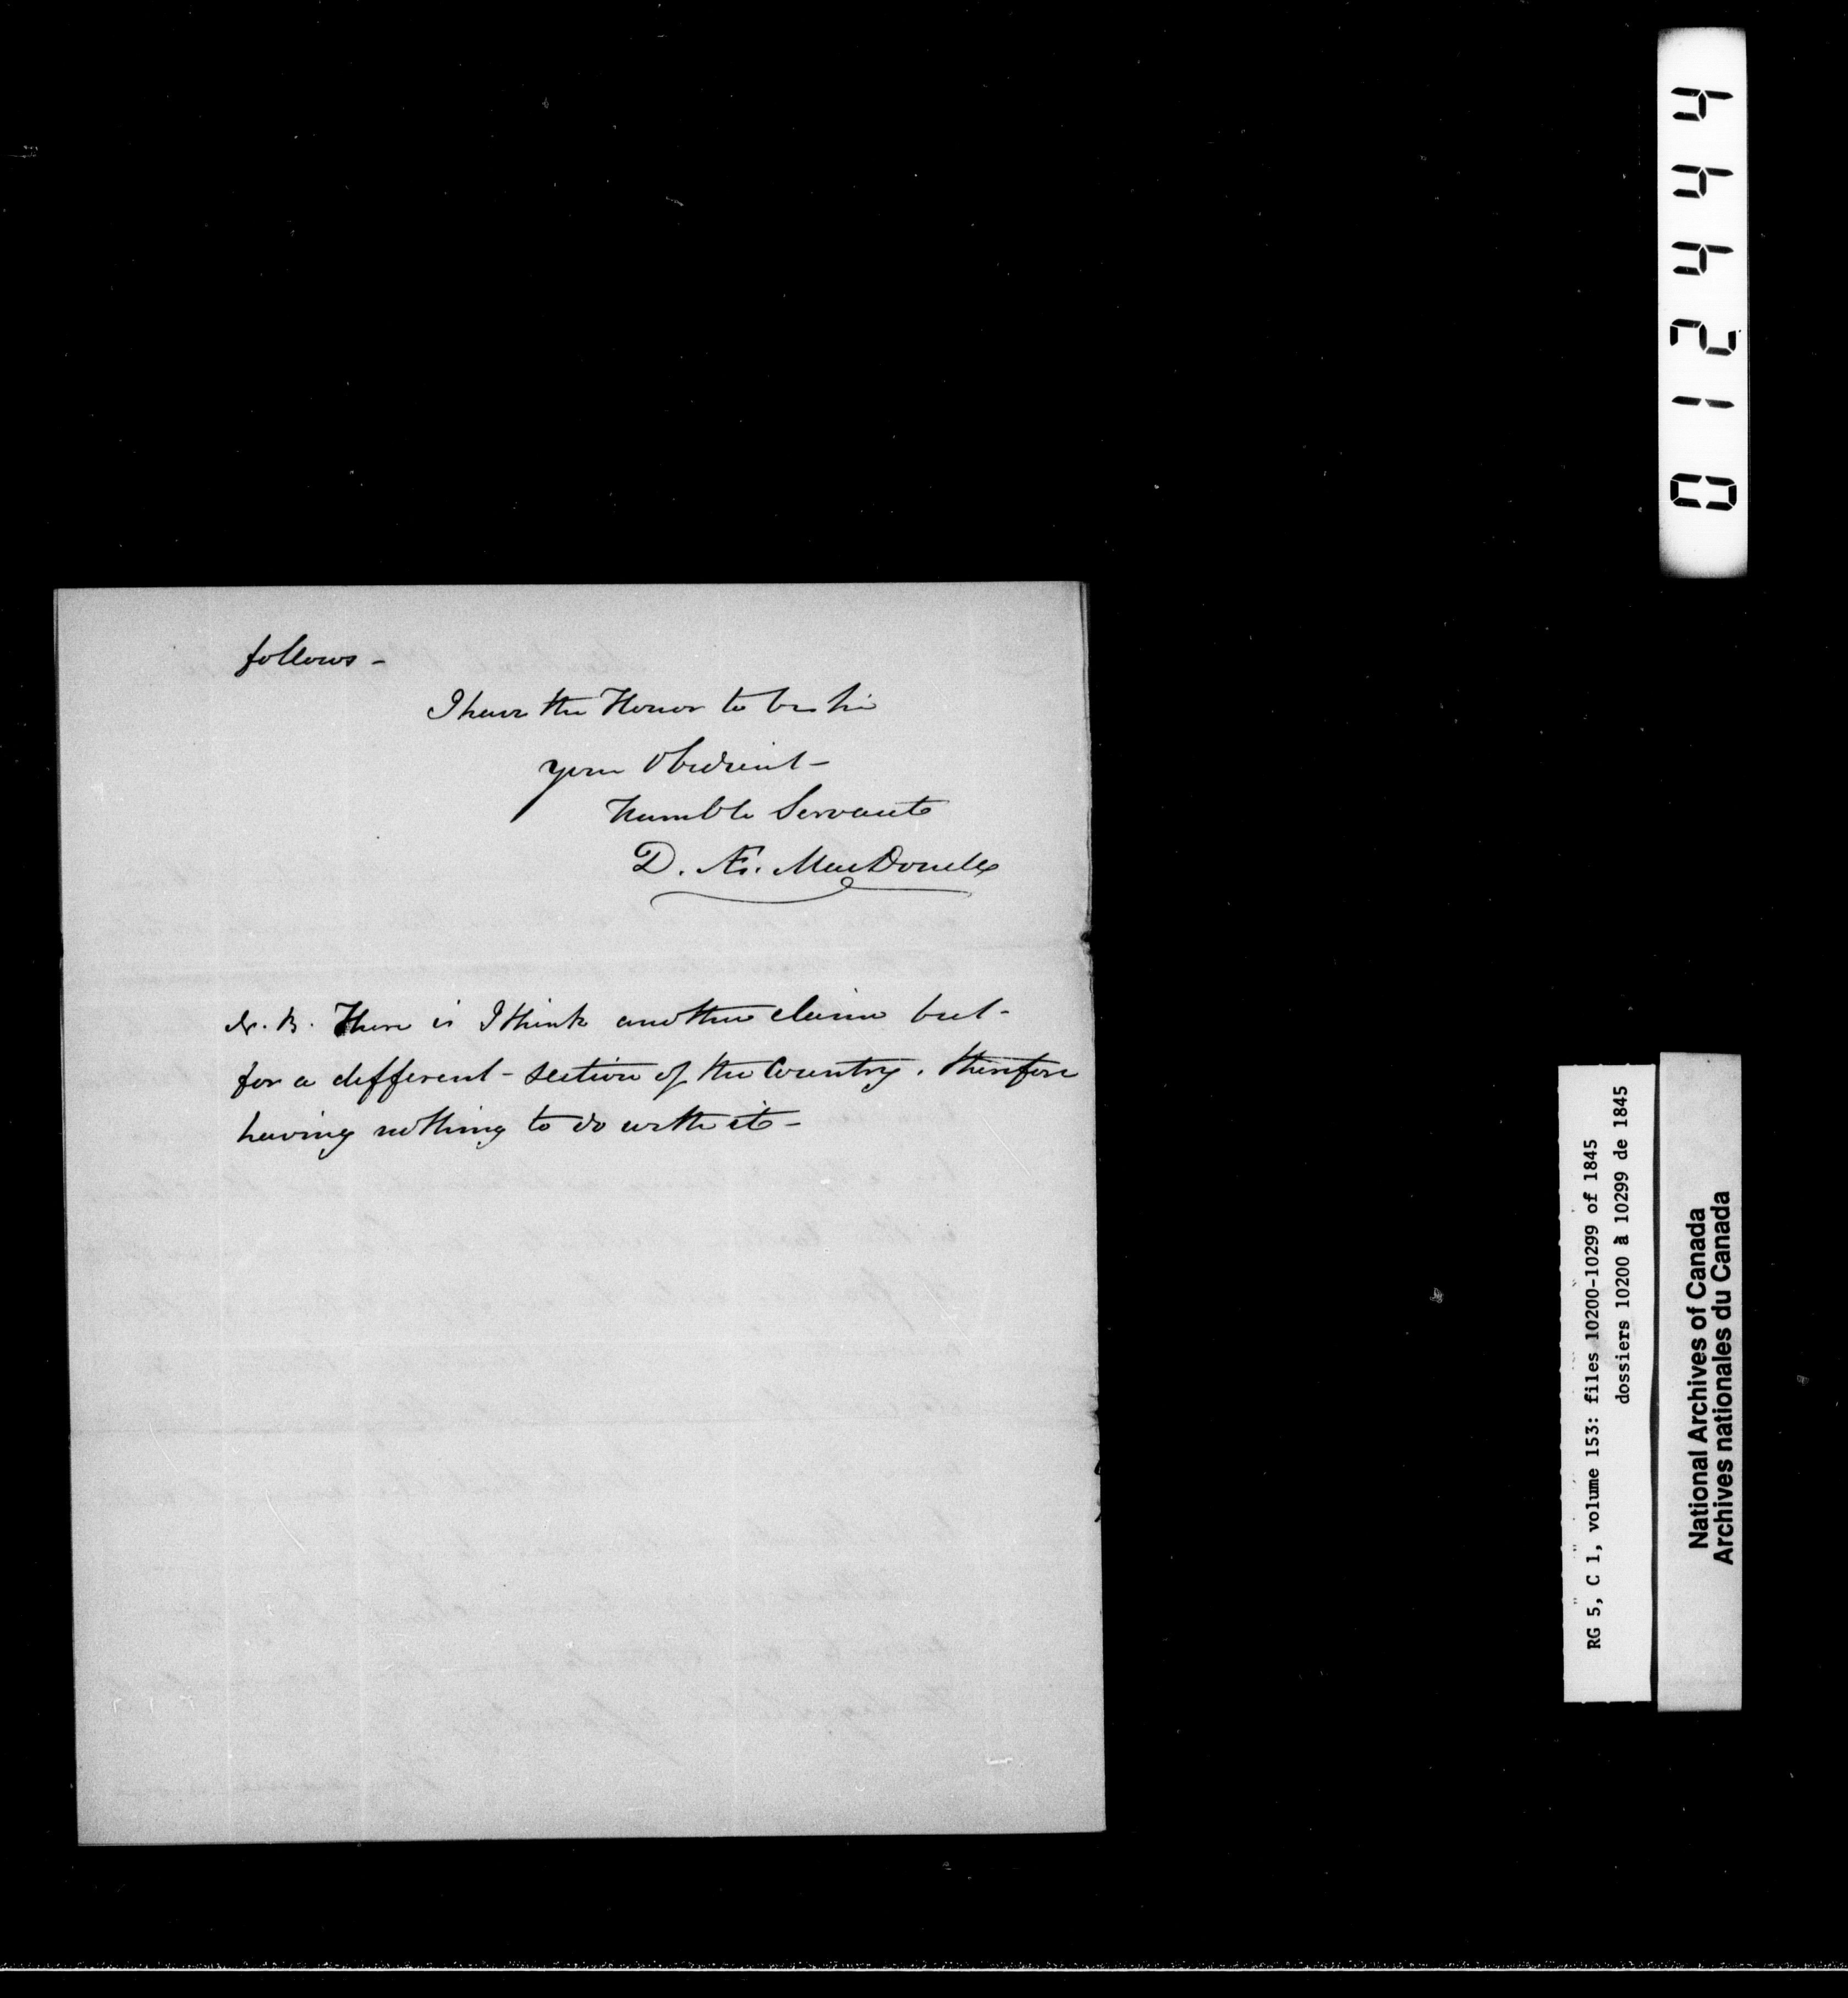 follows -
I have the Honor to be Sir
your Obedient -
Humble Servant
D. Æ. MacDonell
N. B. There is I think another claim but -
for a different - section of the Country, therefore
having nothing to do with it -
012444
RG 5, C 1, volume 153: files 10200-10299 of 1845
dossiers 10200 à 10299 de 1845
National Archives of Canada
Archives nationales du Canada